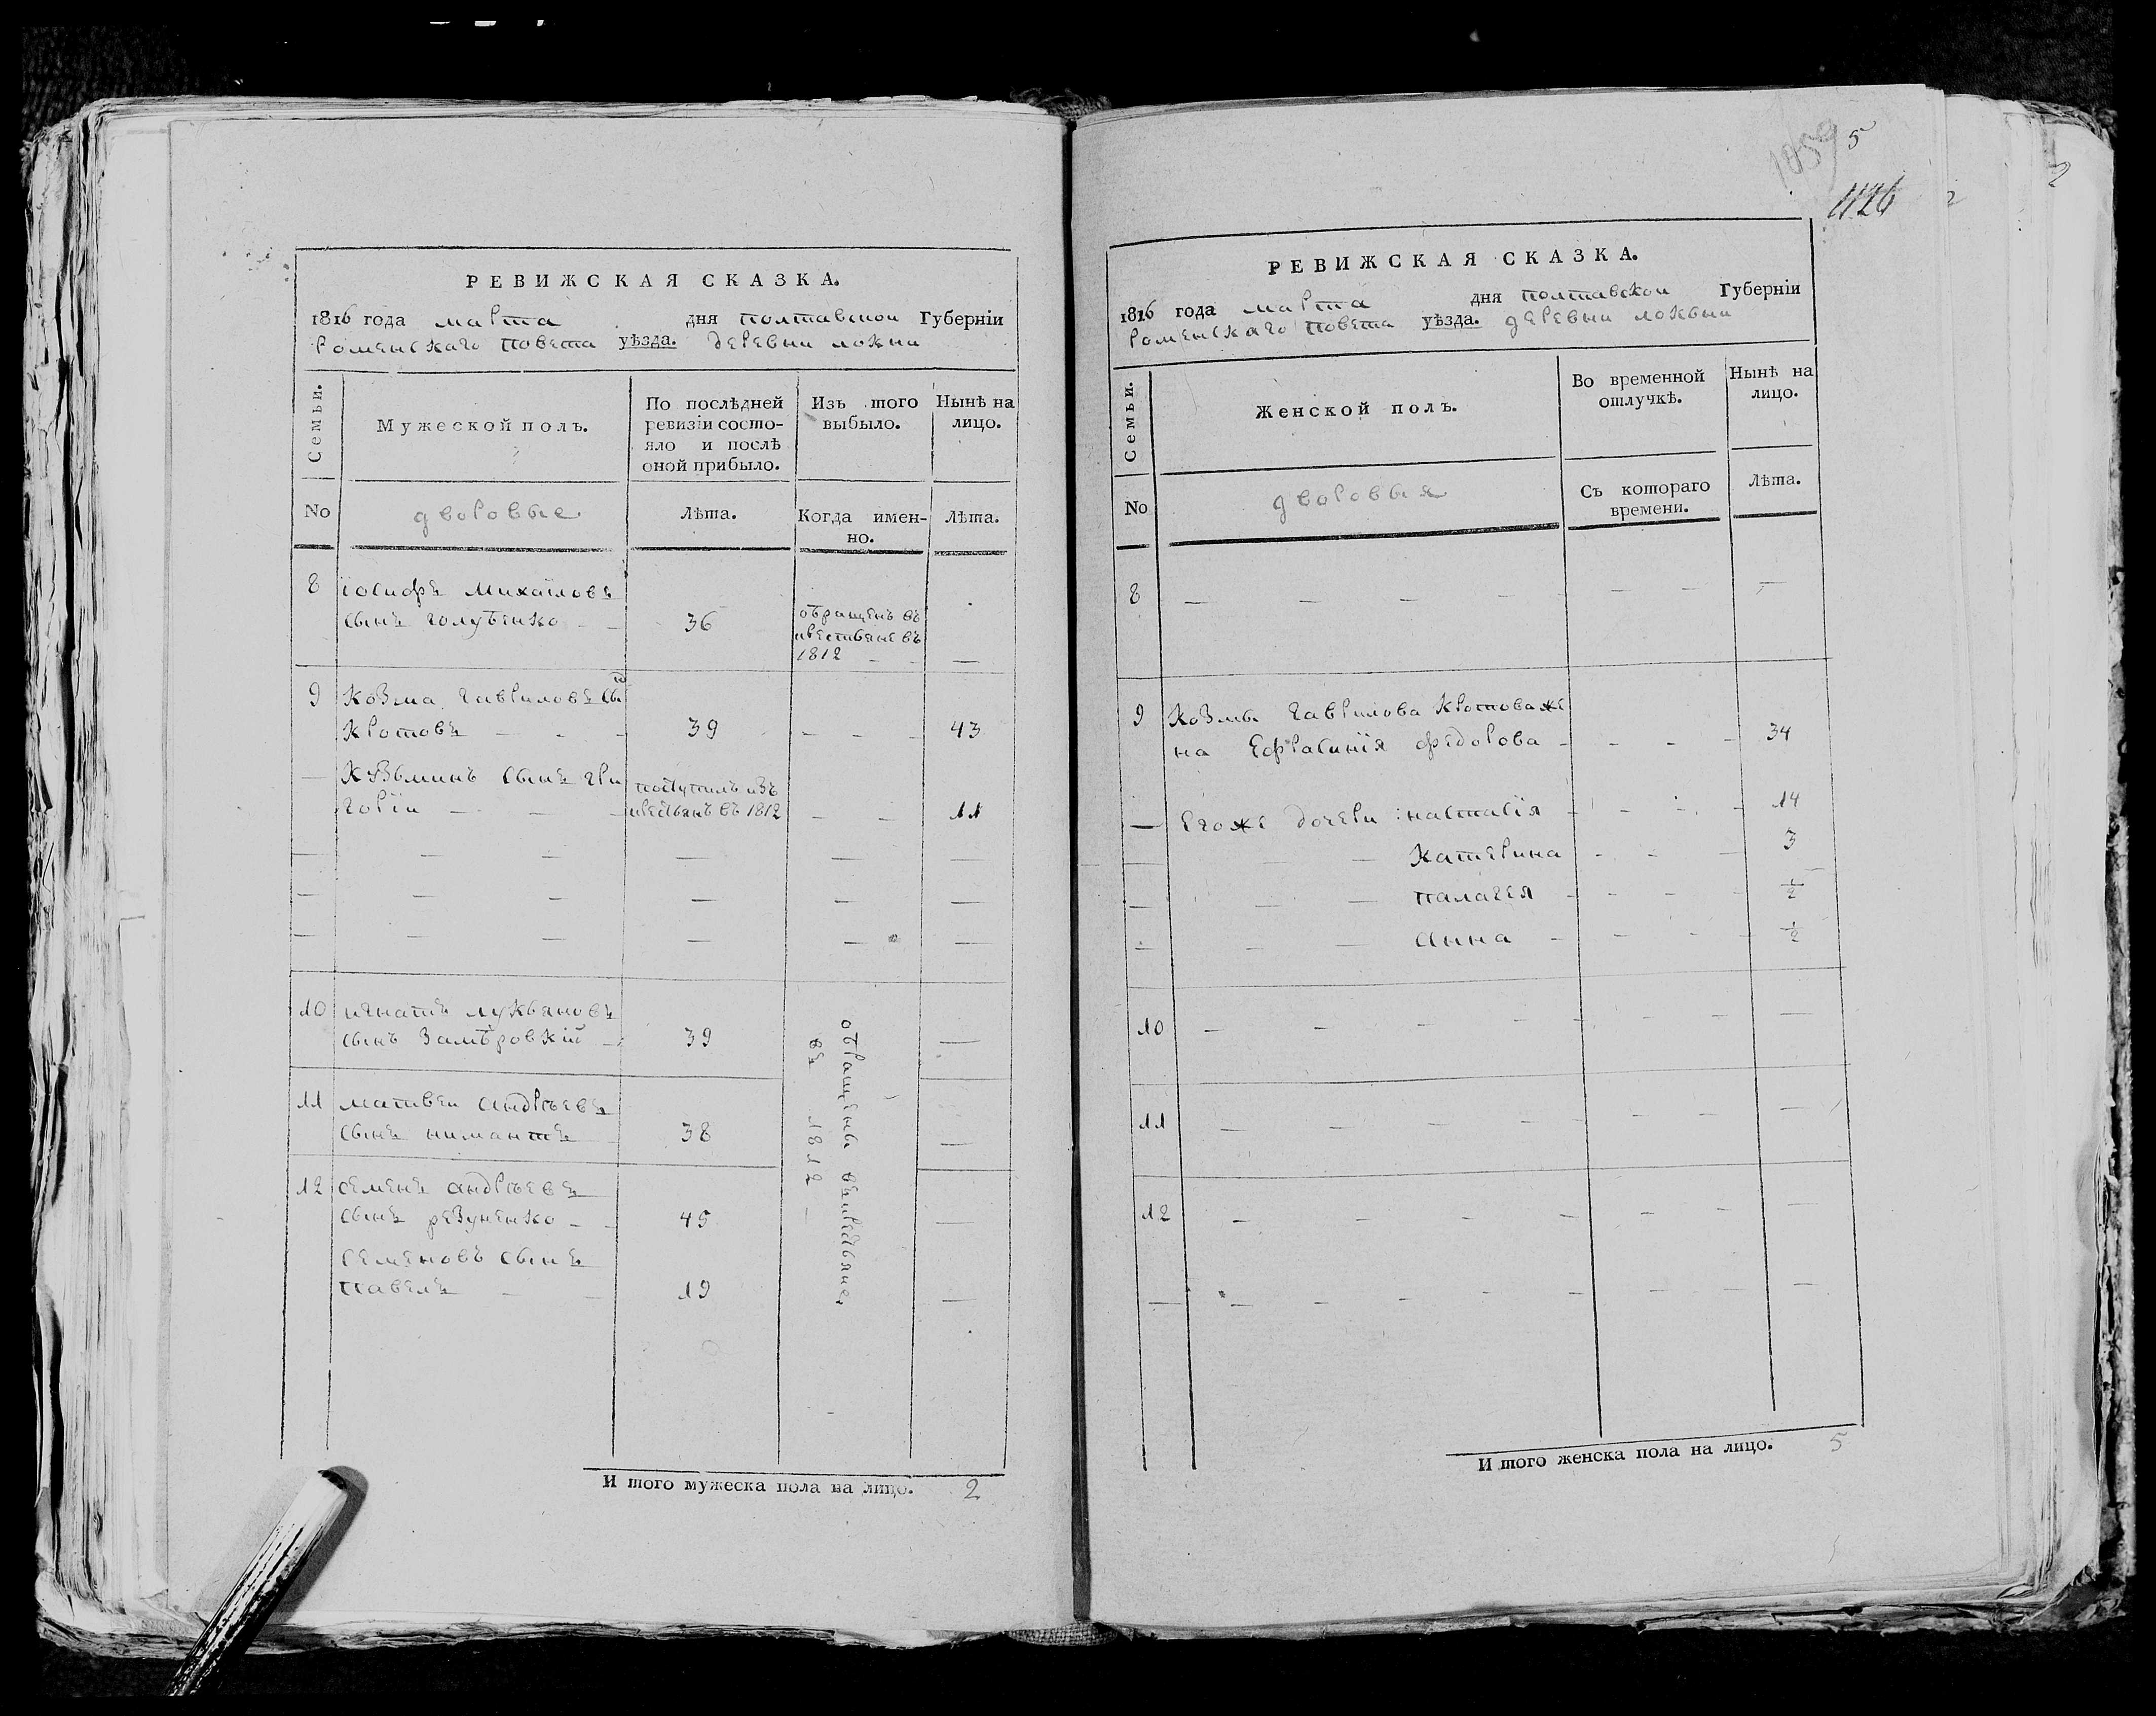 РЕВИЖСКАЯ СКАЗКА.
1816 года марта дня полтавской Губернїи
роменскаго повета уѣзда. деревни локни
Семьи.
Мужеской полъ.
По послѣдней
ревизїи состо-
яло и послѣ
оной прибыло.
Изъ того
выбыло.
Нынѣ на
лицо.
No
дворовые
Лѣта.
Когда имен-
но.
Лѣта.
8 їосифъ михаиловъ
сынъ голубенко 36
обращенъ въ
крестьяне въ
1812
9 козма гавриловъ сы
кротовъ 39 43
козьминъ сынъ гри
горїи
поступилъ изъ
крестьянъ въ 1812
11
10 игнатъ лукьяновъ
сынъ 39
11 матвеи андреевъ
сынъ 38
12 семенъ андреевъ
сынъ резуненко 45
семеновъ сынъ
павелъ 19
обращены въ крестьяне
въ 1812
И того мужеска пола на лицо. 2
5
1059
1126
РЕВИЖСКАЯ СКАЗКА.
1816 года марта дня полтавской Губернїи
роменскаго повета уѣзда. деревни локни
Семьи.
Женской полъ.
Во временной
отлучкѣ.
Нынѣ на
лицо.
No
дворовыя
Съ котораго
времени.
Лѣта.
8
9 козмы гаврилова кротова же
на ефрасинїя федорова 34
егоже дочери: настасїя 14
катерина 3
палагея ½
анна ½
10
11
12
И того женска пола на лицо. 5